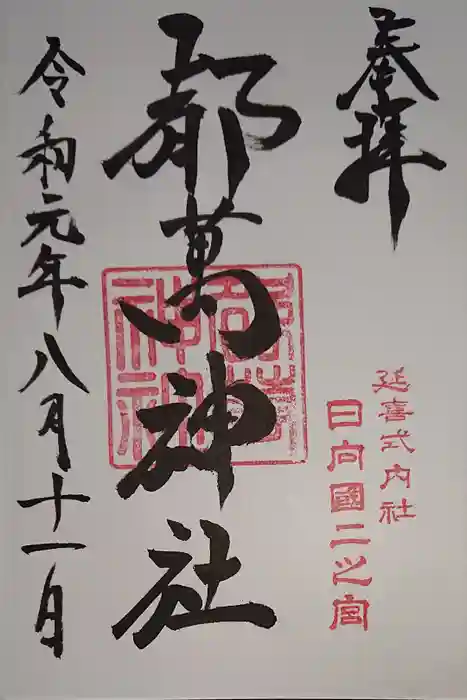 奉拝
延喜式内社
日向國二之宮
都萬神社
都萬
神社
令和元年八月十一日